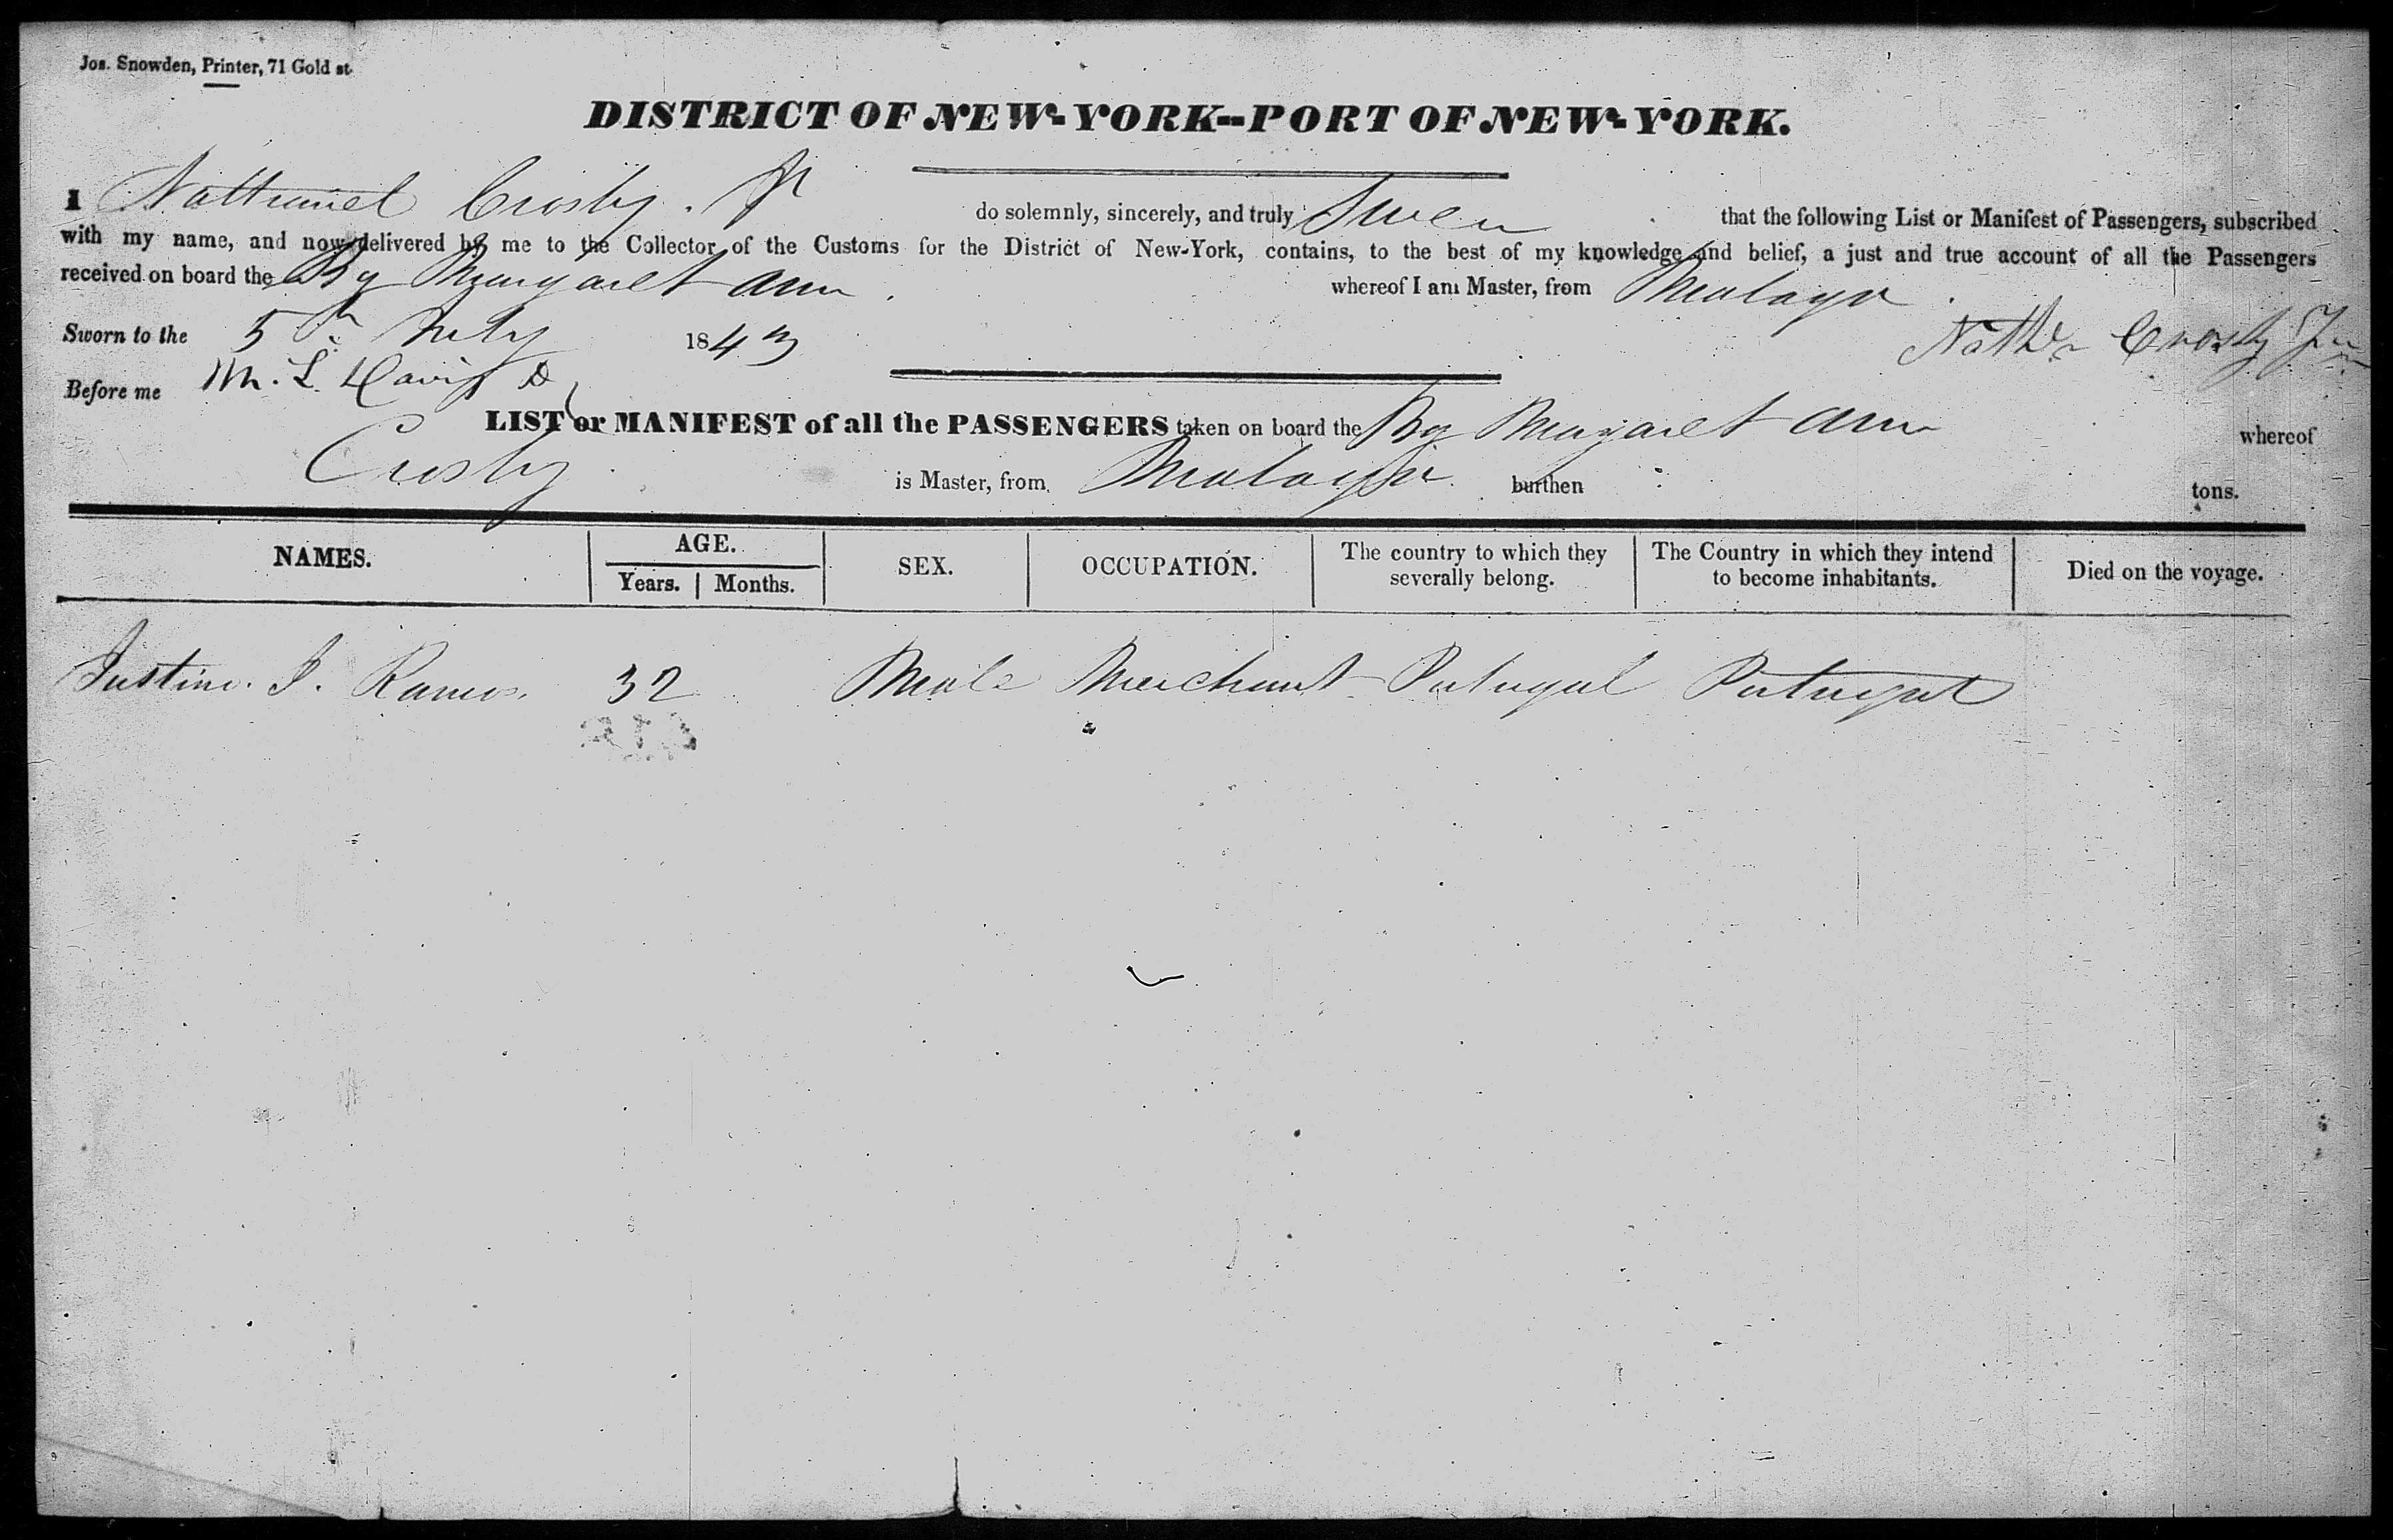 Jos. Snowden, Printer, 71 Gold st.
DISTRICT OF NEW-YORK--PORT OF NEW-YORK.
I Nathaniel Crosby. Jr do solemnly, sincerely, and truly Swear that the following List or Manifest of Passengers, subscribed
with my name, and now delivered by me to the Collector of the Customs for the District of New-York, contains, to the best of my knowledge and belief, a just and true account of all the Passengers
received on board the Bg Margaret Ann. whereof I am Master, from Malaga.
Sworn to the 5th July 1843 Nathl Crosby Jr
Before me M. L. Davis D
LIST or MANIFEST of all the PASSENGERS taken on board the Bg Margaret Ann whereof
Crosby is Master, from Malaga. burthen tons.
NAMES. AGE. Years. Months. SEX. OCCUPATION. The country to which they severally belong. The Country in which they intend to become inhabitants. Died on the voyage.
Justino. J. Ramos. 32 Male Merchant Portugal Portugal